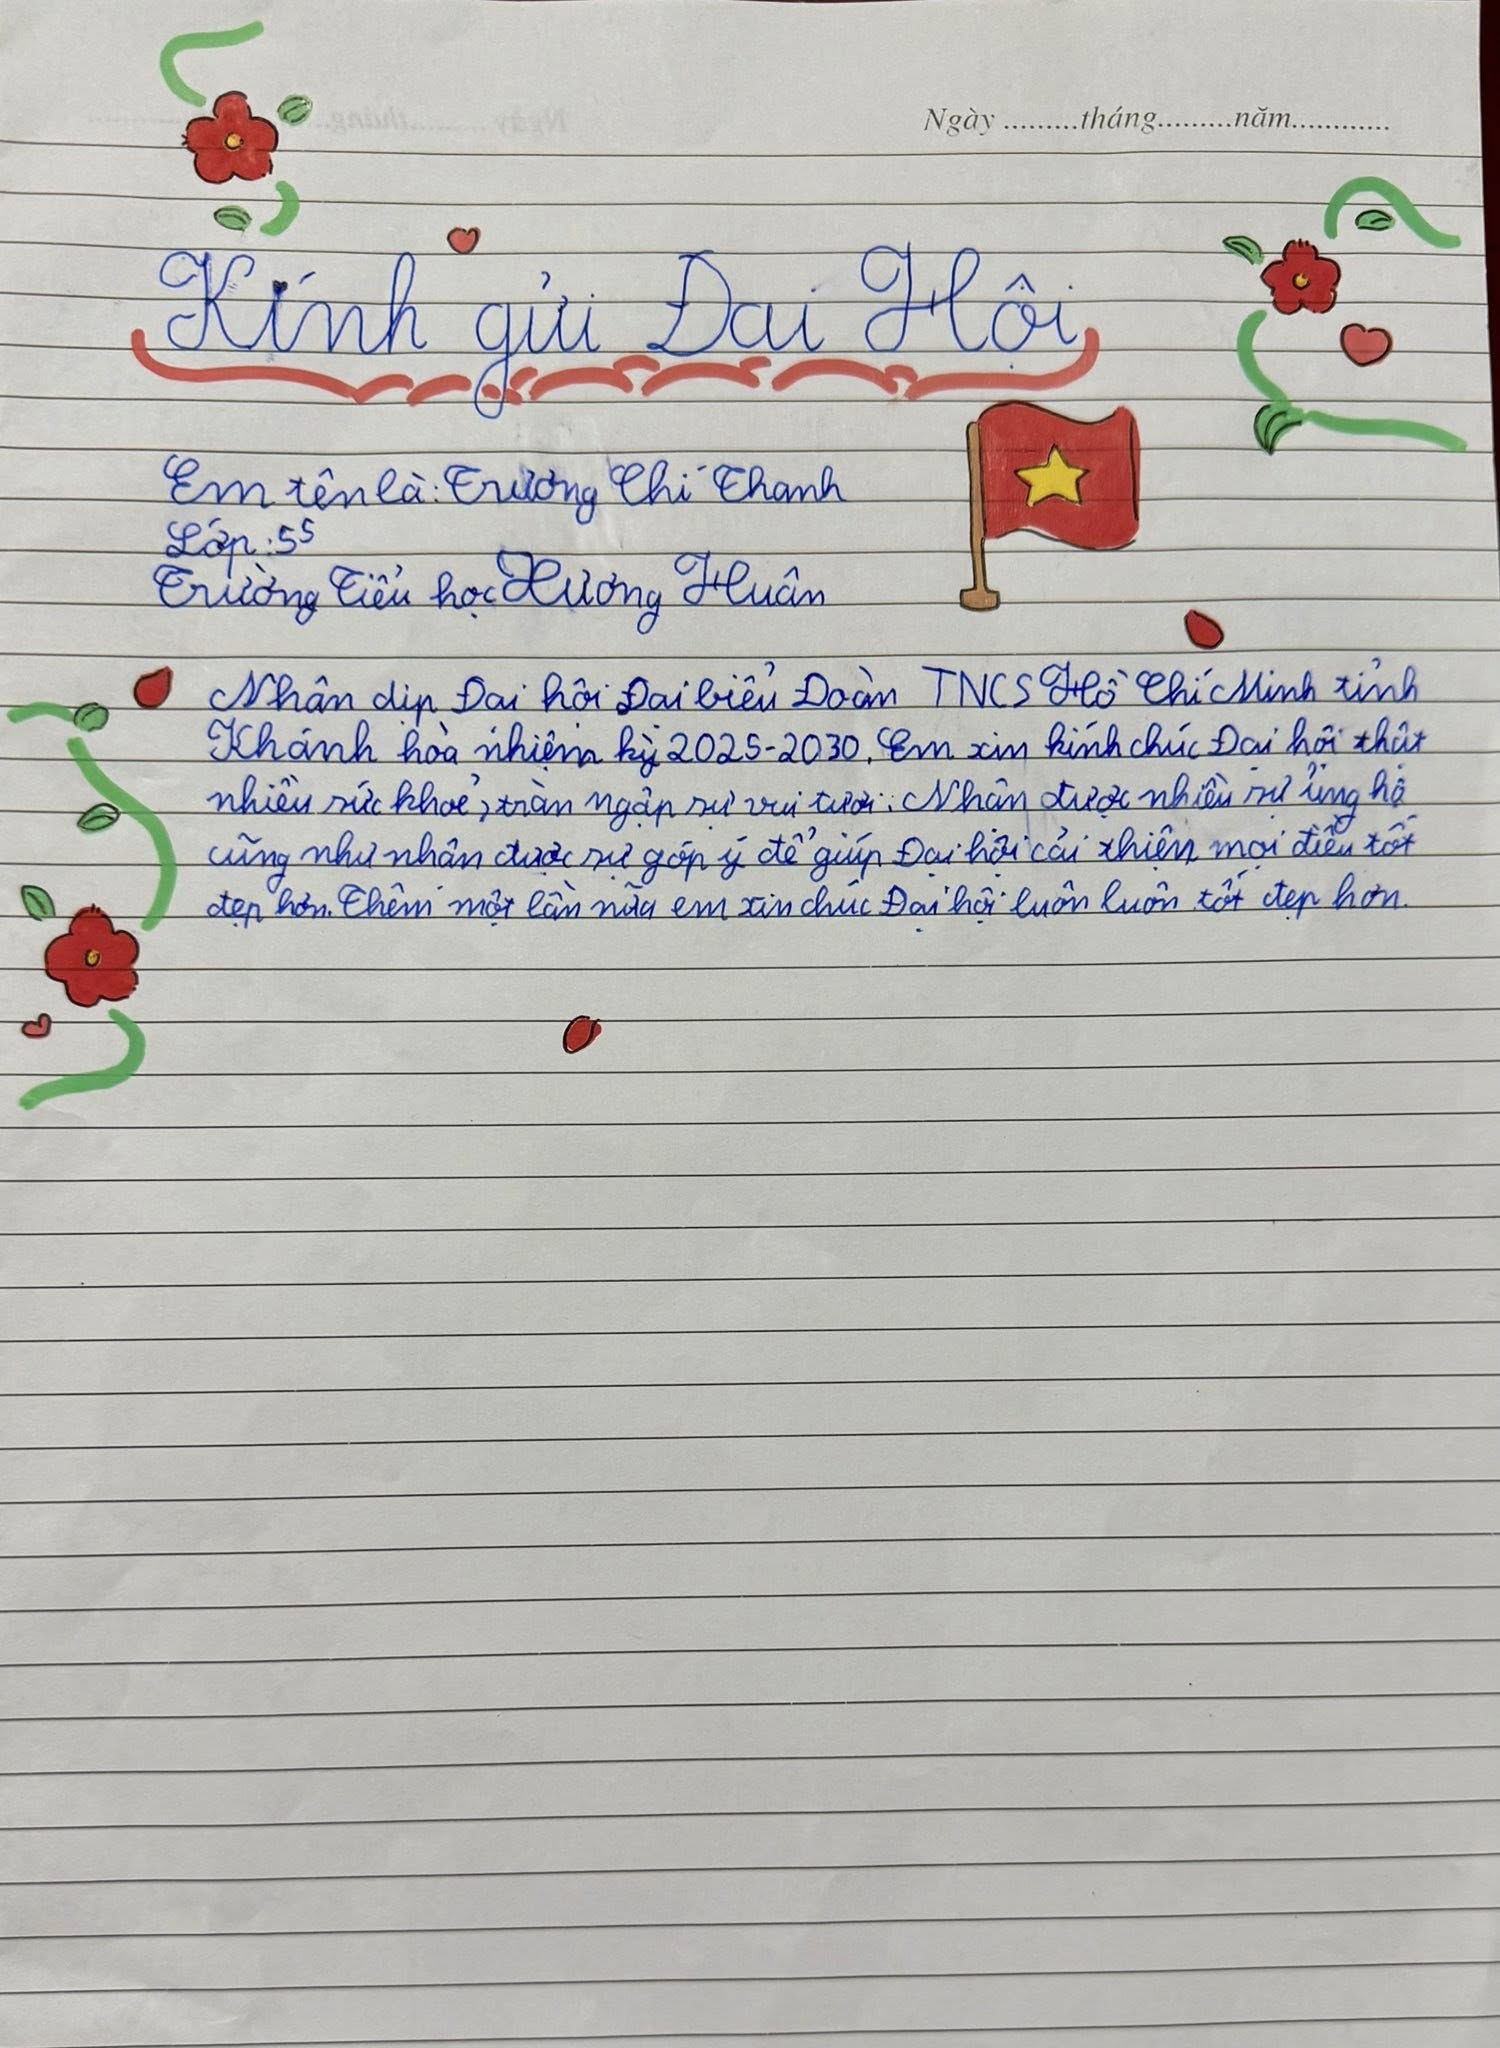 Ngày .........tháng.........năm............
Kính gửi Đại Hội
Em tên là: Trương Chí Thanh
Lớp: 5⁵
Trường Tiểu học Xương Huân
Nhân dịp Đại hội Đại biểu Đoàn TNCS Hồ Chí Minh tỉnh
Khánh hòa nhiệm kỳ 2025-2030. Em xin kính chúc Đại hội thật
nhiều sức khoẻ, tràn ngập sự vui tươi. Nhân được nhiều sự ủng hộ
cũng như nhân được sự góp ý để giúp Đại hội cải thiện mọi điều tốt
đẹp hơn. Thêm một lần nữa em xin chúc Đại hội luôn luôn tốt đẹp hơn.